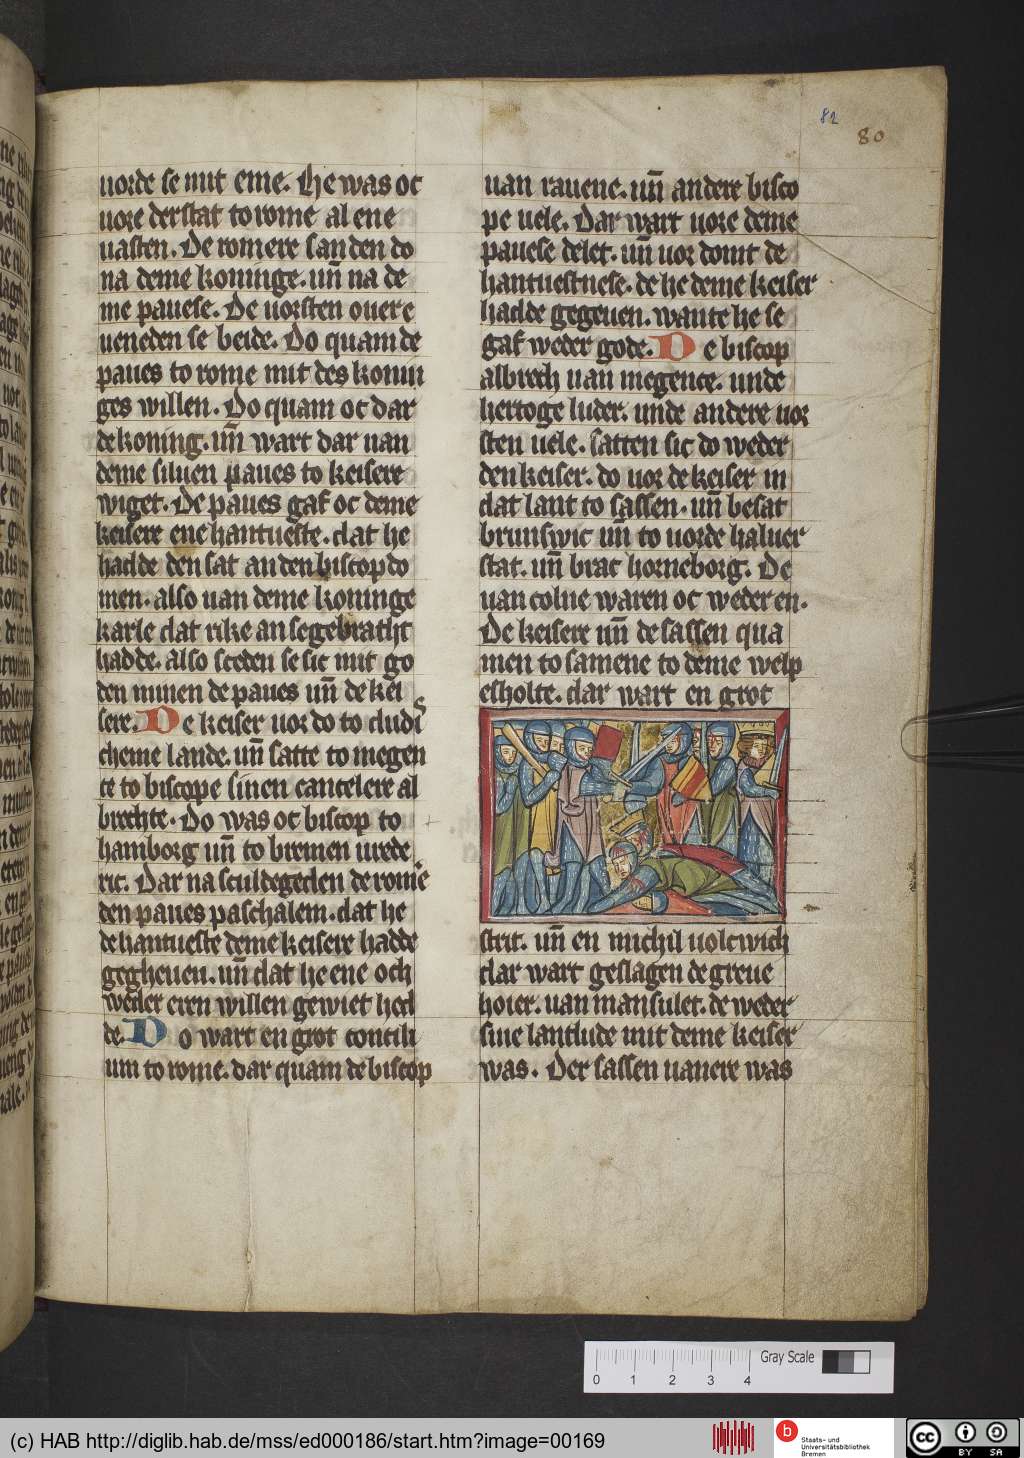 82
80
uorde se mit eme. He was oc
uore der stat to rome al ene
uasten. De romere sanden do
na deme koninge. un̄ na de
me pauese. De uorsten ouere
ueneden se beide. Do quam de
paues to rome mit des konin
ges willen. Do quam oc dar
de koning. un̄ wart dar uan
deme siluen paues to keisere
wiget. De paues gaf oc deme
keisere ene hantueste. dat he
hadde den sat an den biscopdo
men. also uan deme koninge
karle dat rike an se gebracht
hadde. also sceden se sic mit go
den minen de paues un̄ de kei
sere. De keiser uor do to dudis
cheme lande. un̄ satte to megen
ce to biscope sinen cancelere al
brechte. Do was oc biscop to
hamborg un̄ to bremen urede
ric. Dar na sculdegeden de rome
den paues paschalem. dat he
de hantueste deme keisere hadde
gegheuen. un̄ dat he ene och
weder eren willen gewiet hed
de. Do wart en grot concili
um to rome. dar quam de biscop
uan rauene. un̄ andere bisco
pe uele. Dar wart uore deme
pauese delet. un̄ uor domt de
hantuestnese. de he deme keiser
hadde gegeuen. wante he se
gaf weder gode. De biscop
albrech uan megence. unde
hertoge luder. unde andere uor
sten uele. satten sic do weder
den keiser. do uor de keiser in
dat lant to sassen. un̄ besat
brunswic un̄ to uorde haluer
stat. un̄ brac horneborg. De
uan colne waren oc weder en.
De keisere un̄ de sassen qua
men to samene to deme welp
esholte. dar wart en grot
strit. un̄ en michil uolcwich
dar wart geslagen de greue
hoier. uan mansuelt. de weder
sine lantlude mit deme keiser
was. Der sassen uanere was
Gray Scale
0 1 2 3 4
(c) HAB http://diglib.hab.de/mss/ed000186/start.htm?image=00169
b
Staats- und
Universitätsbibliothek
Bremen
cc
BY SA